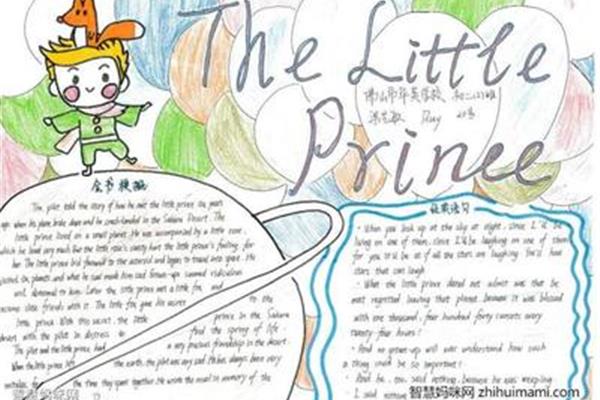 The Little
Prince
全书梗概
The pilot told the story of how he met the little prince six years
ago when his plane broke down and he crash-landed in the Sahara Desert. The
little prince lived on a small planet. He was accompanied by a little rose,
which he loved very much. But the little rose's vanity hurt the little prince's feelings
The little prince bid farewell to the asteroid and began to travel into space. He
visited six planets and what he saw made him sad. Grown-ups seemed ridiculous
and abnormal to him. Later the little prince met a little fox, and
become close friends with it. The little fox gave his secret to the
little prince. With this secret, the little prince in the Sahara
desert with the pilot in distress to find the spring of life.
The pilot and the little prince had a very precious friendship in the desert.
When the little prince left the earth, the pilot was very sad. He has always been very
the time they spent together. He wrote the novel in memory of the
佳英语句
· When you look at the sky at night, since I'll be
living on one of them, since I'll be laughing on one of them
for you it'll be as if all the stars are laughing. You'll have
stars that can laugh
· What the little prince dared not admit was that he
most regretted leaving that planet because it was blessed
with one thousand, four hundred forty sunsets every
twenty-four hours!
· And no grown-up will ever understand how such
a thing could be so important!
· And he, too, said nothing, because he was weeping
智慧妈咪网 zhihuimami.com
智慧妈咪网